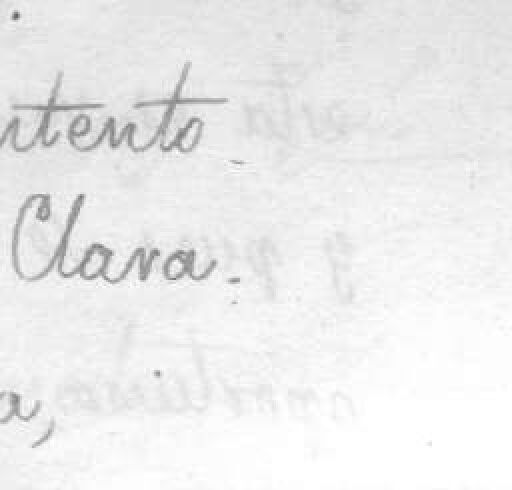 ntento.
Clara.
a,